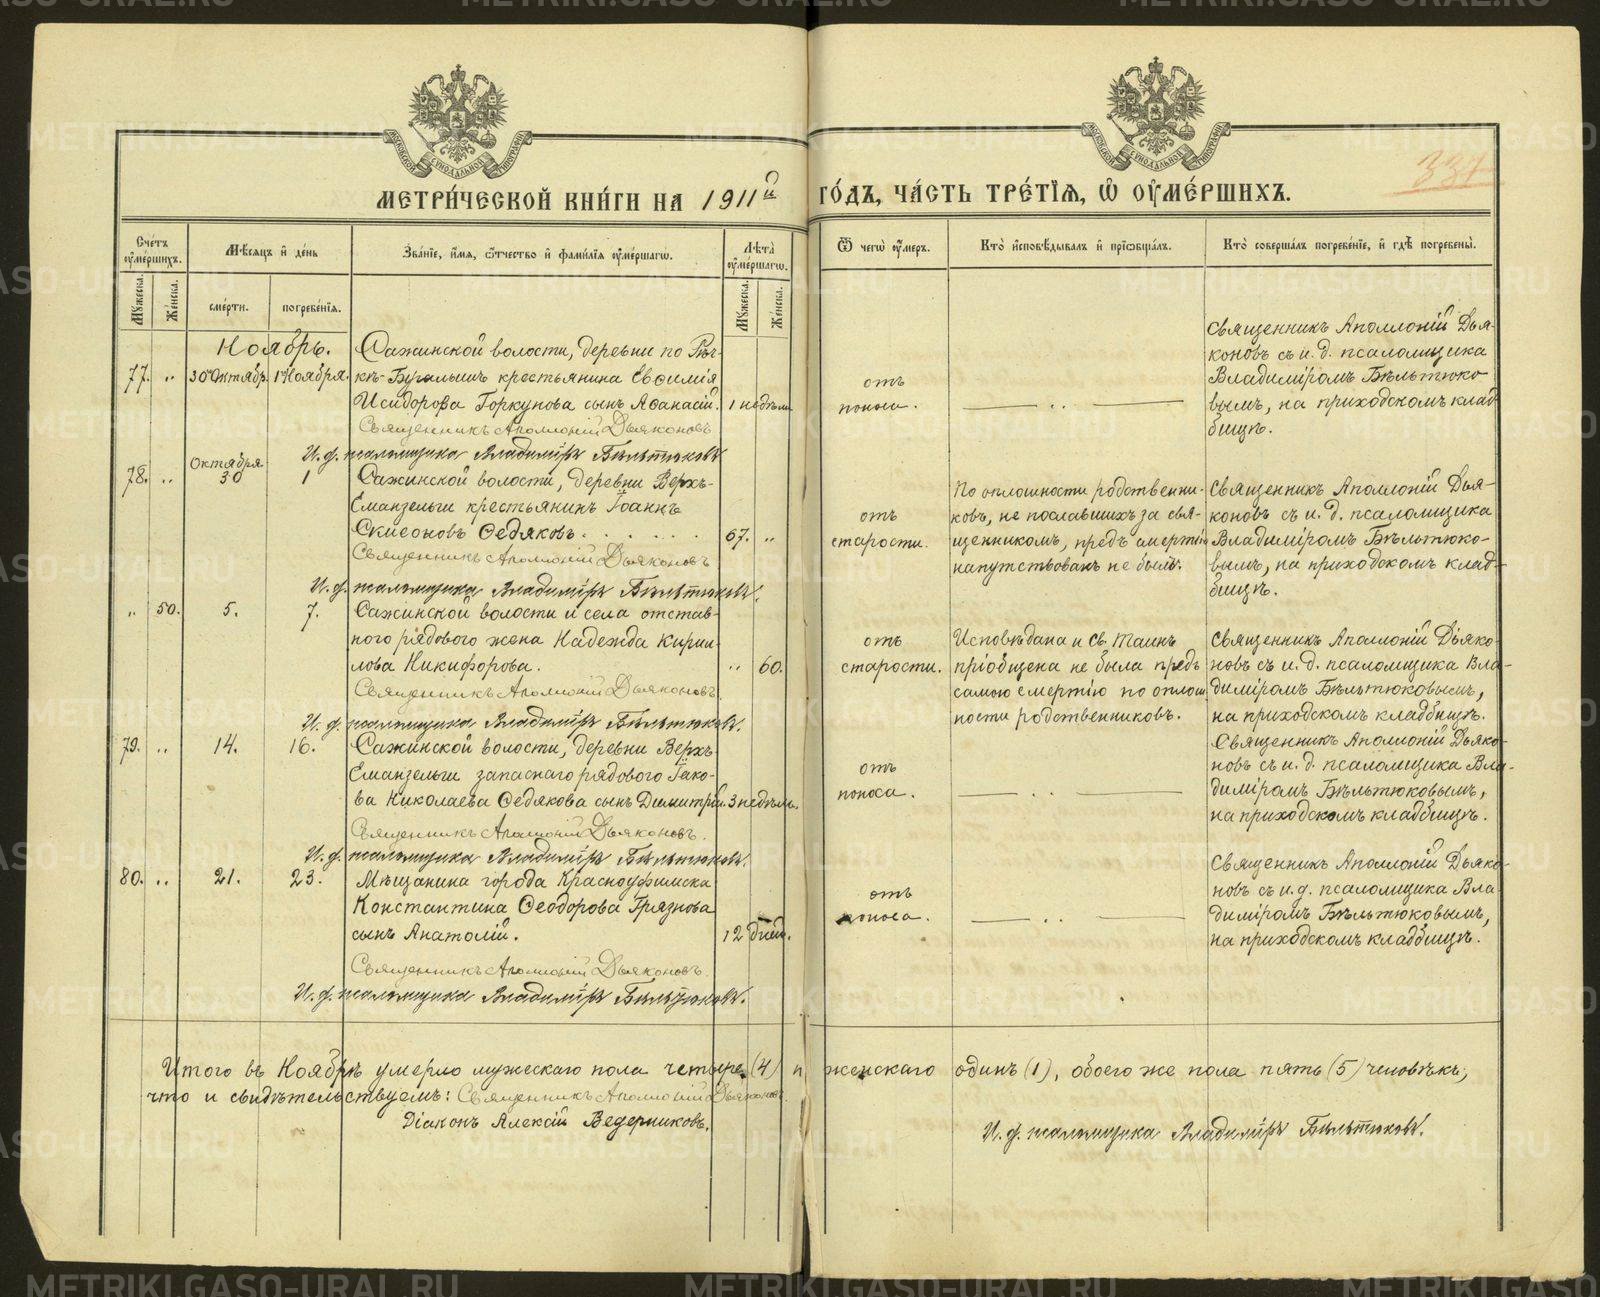 МЕТРИ́ЧЕСКОЙ КНИ́ГИ НА 1911й ГО́ДЪ, ЧА́СТЬ ТРЕ́ТІЯ, Ѡ ОУМЕ́РШИХЪ.
Сче́тъ оуме́ршихъ.
Мѣ́сяцъ и де́нь
Зва́ніе, и́мя, ѻ́тчество и фами́лія оуме́ршагѡ.
Лѣ́та оуме́ршагѡ.
Ѿ чегѡ̀ оу́меръ.
Кто̀ исповѣ́дывалъ и пріѡбща́лъ.
Кто̀ соверша́лъ погребе́ніе, и гдѣ̀ погребены̀.
Мꙋ́жеска.
Же́нска.
сме́рти.
погребе́нія.
Мꙋ́жеска.
Же́нска.
Ноябрь.
77. „ 30 Октябр. 1 Ноября.
Сажинской волости, деревни по Рѣч-
кѣ-Бугалышъ крестьянина Евѳимія
Исидорова Горкунова сынъ Аѳанасій. 1 недѣли
Священникъ Аполлоній Дьяконовъ
И. ф. псаломщика Владиміръ Бѣльтюковъ
отъ
поноса.
Священникъ Аполлоній Дья-
коновъ съ и. д. псаломщика
Владиміромъ Бѣльтюко-
вымъ, на приходскомъ клад-
бищѣ.
78. „ Октября 30 1
Сажинской волости, деревни Верхъ-
Еманзельги крестьянинъ Іоаннъ
Симеоновъ Ѳедяковъ. . . . . . . 67. „
Священникъ Аполлоній Дьяконовъ
И. ф. псаломщика Владиміръ Бѣльтюковъ.
отъ
старости.
По оплошности родственни-
ковъ, не пославшихъ за свя-
щенникомъ, предъ смертію
напутствованъ не былъ.
Священникъ Аполлоній Дья-
коновъ съ и. д. псаломщика
Владиміромъ Бѣльтюко-
вымъ, на приходскомъ клад-
бищѣ.
„ 50. 5. 7.
Сажинской волости и села отстав-
ного рядового жена Надежда Кирил-
лова Никифорова. „ 60.
Священникъ Аполлоній Дьяконовъ
И. ф. псаломщика Владиміръ Бѣльтюковъ.
отъ
старости.
Исповѣдана и Св. Таинъ
пріобщена не была предъ
самою смертію по оплош
ности родственниковъ.
Священникъ Аполлоній Дьяко-
новъ съ и. д. псаломщика Вла-
диміромъ Бѣльтюковымъ,
на приходскомъ кладбищѣ.
79. „ 14. 16.
Сажинской волости, деревни Верхъ-
Еманзельги запаснаго рядового Іако-
ва Николаева Ѳедякова сынъ Димитрій. 3 недѣль.
Священникъ Аполлоній Дьяконовъ.
И. ф. псаломщика Владиміръ Бѣльтюковъ.
отъ
поноса.
Священникъ Аполлоній Дьяко-
новъ съ и. д. псаломщика Вла-
диміромъ Бѣльтюковымъ,
на приходскомъ кладбищѣ.
80. „ 21. 23.
Мѣщанина города Красноуфимска
Константина Ѳеодорова Грязнова
сынъ Анатолій. 12 дней.
Священникъ Аполлоній Дьяконовъ
И. ф. псаломщика Владиміръ Бѣльтюковъ.
отъ
поноса.
Священникъ Аполлоній Дьяко-
новъ съ и. д. псаломщика Вла-
диміромъ Бѣльтюковымъ,
на приходскомъ кладбищѣ.
Итого въ Ноябрѣ умерло мужескаго пола четыре (4) и женскаго одинъ (1), обоего же пола пять (5) человѣкъ,
что и свидѣтельствуемъ: Священникъ Аполлоній Дьяконовъ.
Діаконъ Алексій Ведерниковъ.
И. ф. псаломщика Владиміръ Бѣльтюковъ.
METRIKI.GASO-URAL.RU